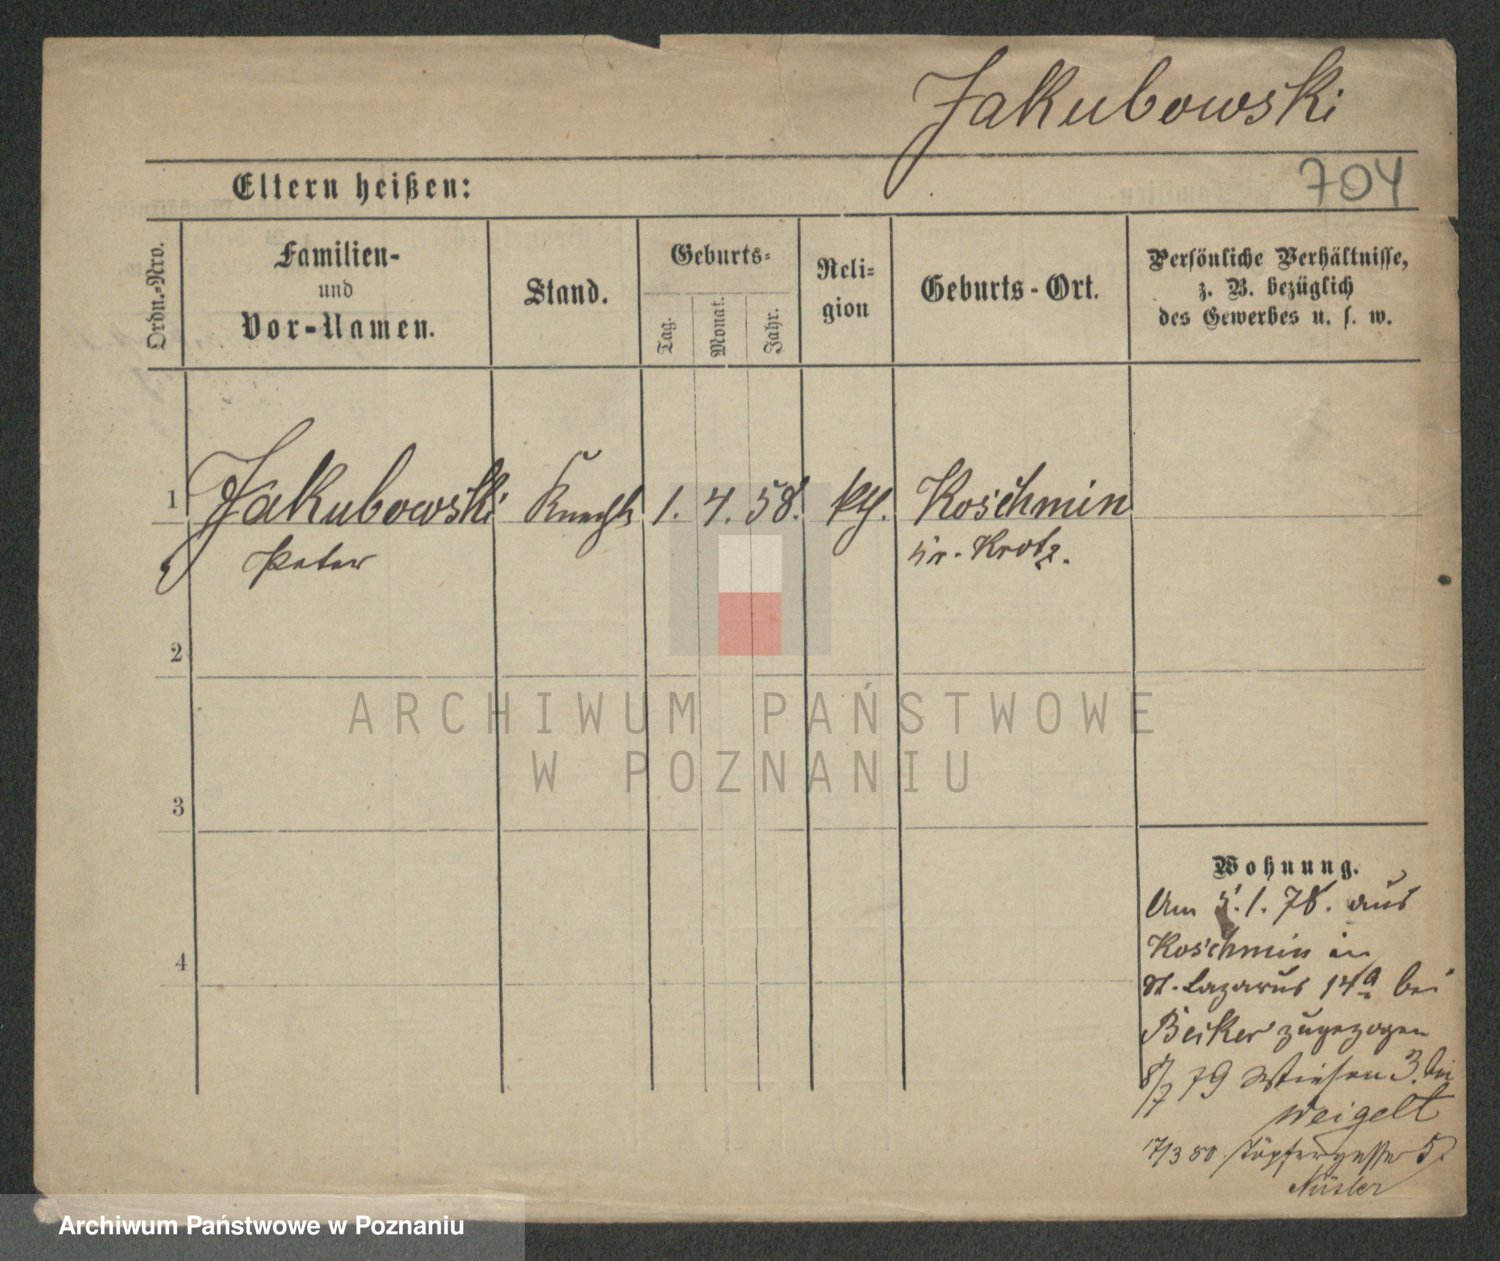 Jakubowski
704
Eltern heißen:
Ordn.-Nro.
Familien-
und
Vor-Namen.
Stand.
Geburts-
Tag.
Monat.
Jahr.
Reli-
gion
Geburts-Ort.
Persönliche Verhältnisse,
z. B. bezüglich
des Gewerbes u. s. w.
1 Jakubowski Knecht 1. 4. 58. kth. Koschmin
Peter Kr. Krotz.
2
ARCHIWUM PAŃSTWOWE
W POZNANIU
3
Wohnung.
Am 5. 1. 78. aus
Koschmin in
4
St. Lazarus 14a bei
Beiker zugezogen
8/7 79 Wiesen 3. bei
Weigelt
17/3 80. Töpfergasse 5
Archiwum Państwowe w Poznaniu